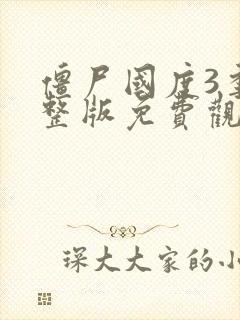 僵尸國度3
整版免費觀
琛大大家的小